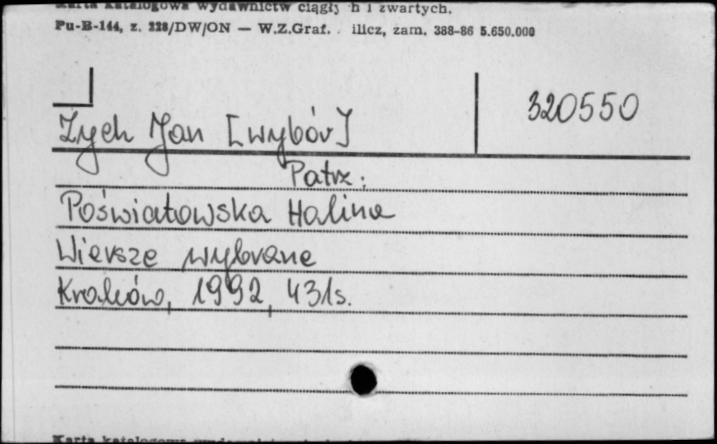 Karta katalogowa wydawnictw ciągłych i zwartych.
Pu-B-144, z. 228/DW/ON — W.Z.Graf. ilicz, zam. 388-86 5.650.000
320550
Zych Jan [wybór]
Patrz:
Poświatowska Halina
Wiersze wybrane
Kraków, 1992, 431s.
Karta katalogowa